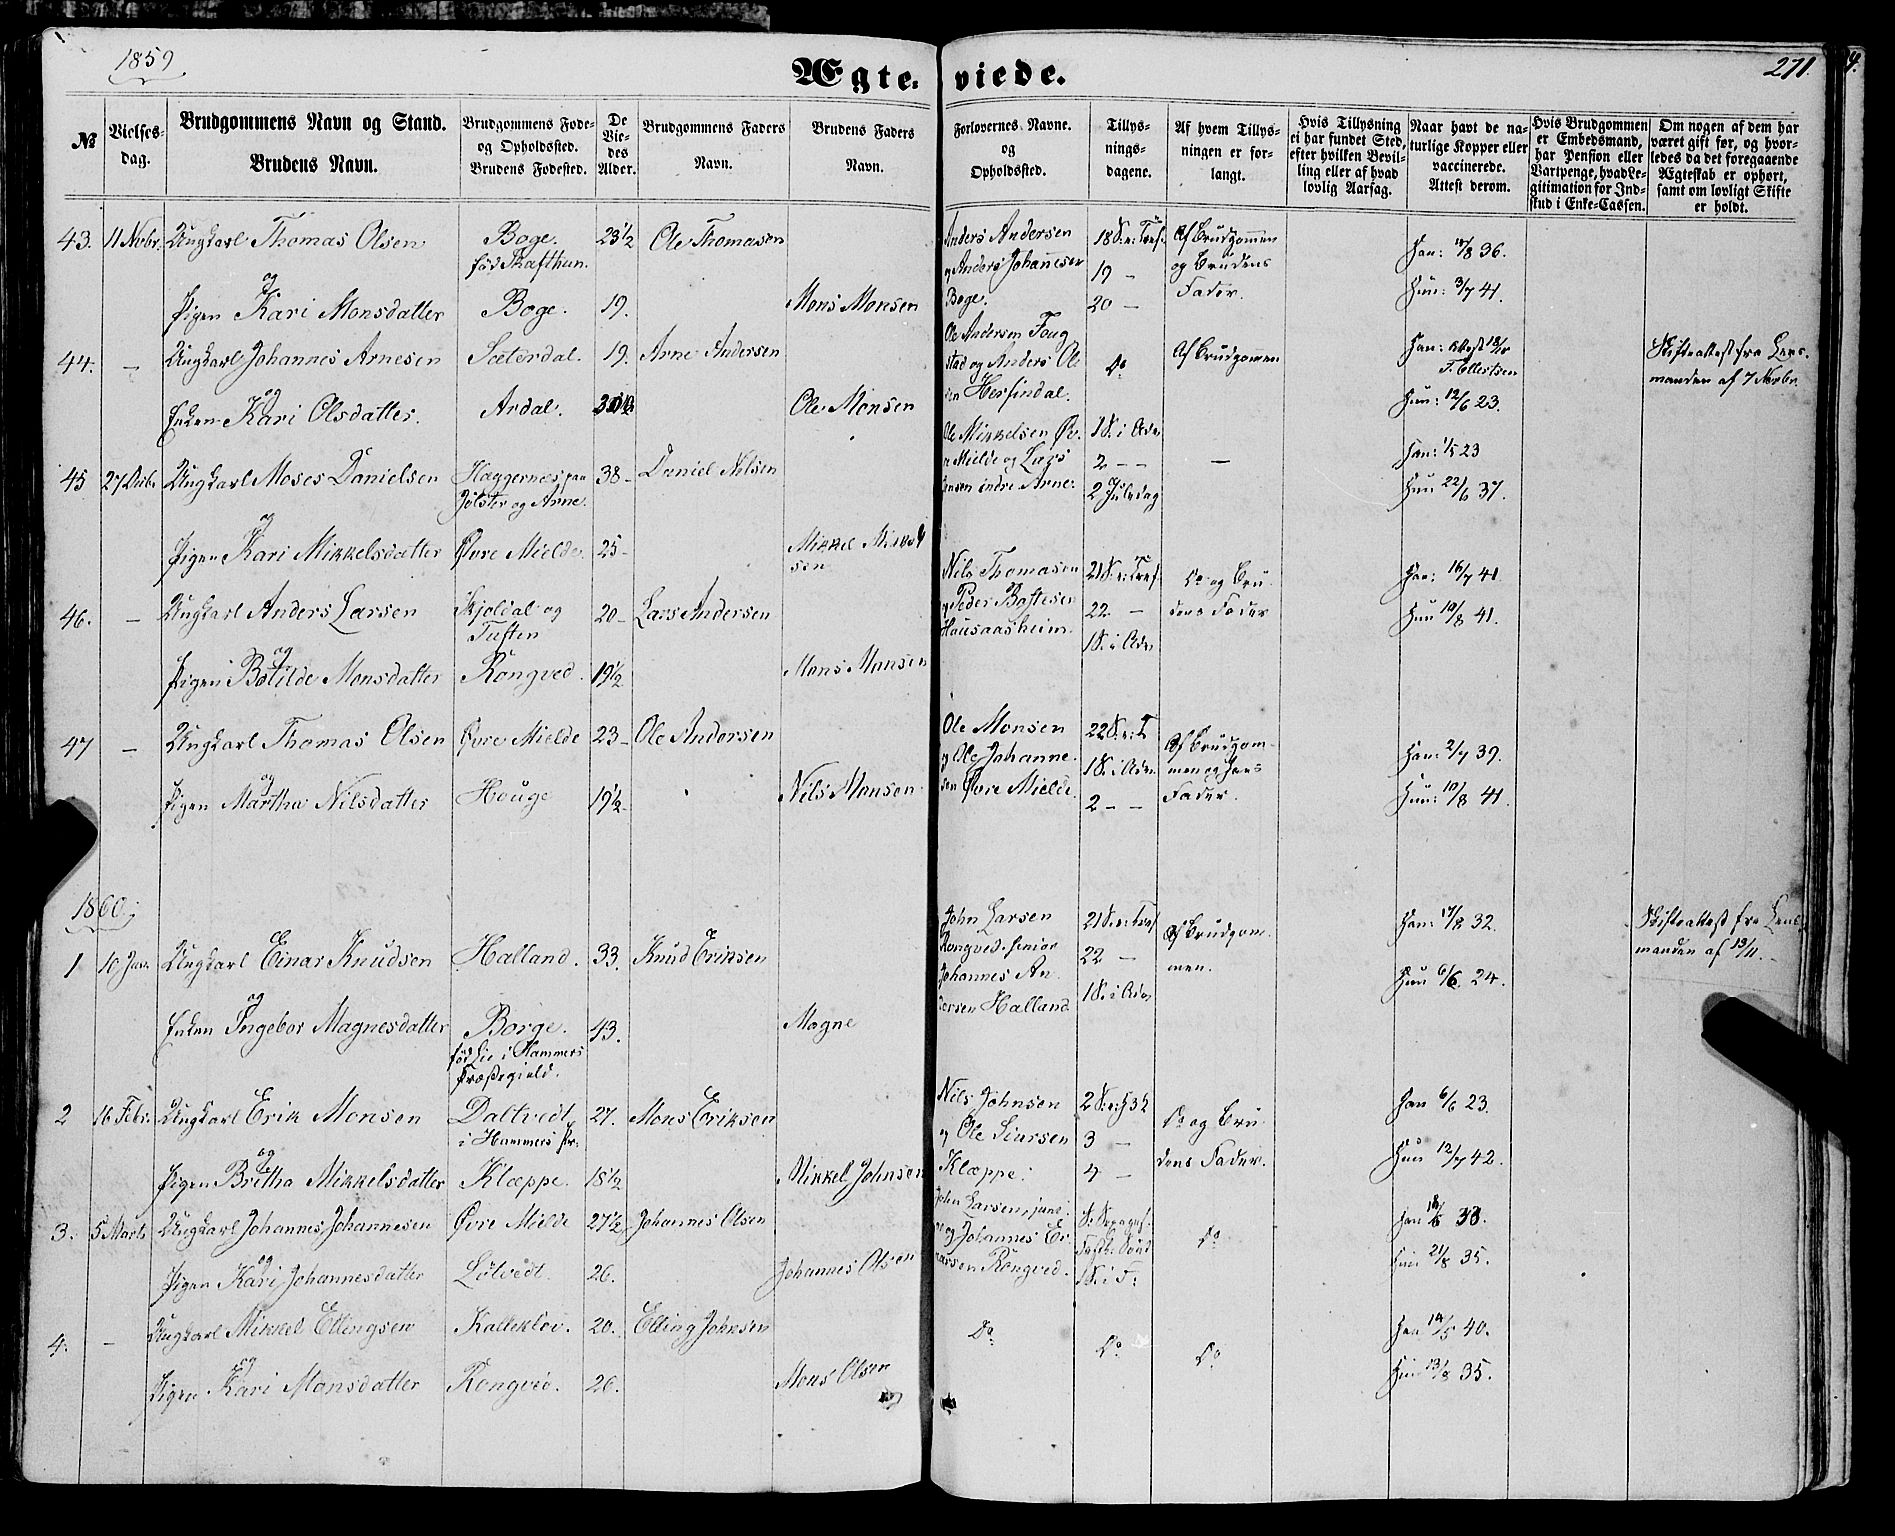 1859
Ægteviede.
271.
№
Vielsesdag.
Brudgommens Navn og Stand.
Brudens Navn.
Brudgommens Føde- og Opholdssted.
Brudens Fødested.
De Viedes Alder.
Brudgommens Faders Navn.
Brudens Faders Navn.
Forlovernes Navne. og Opholdsted.
Tillysningsdagene.
Af hvem Tillysningen er forlangt.
Hvis Tillysning ei har fundet Sted, efter hvilken Bevilling eller af hvad lovlig Aarsag.
Naar havt de naturlige Kopper eller vaccinerede. Attest derom.
Hvis Brudgommen er Embedsmand, har Pension eller Vartpenge, hvad Legitimation for Indskud i Enke-Cassen.
Om nogen af dem har været gift før, og hvorledes da det foregaaende Ægteskab er ophørt, samt om lovligt Skifte er holdt.
43. 11 Novbr. Ungkarl Thomas Olsen Boge. 23½ Ole Thomasen Anders Andersen 18 S. e: Tref. Af Brudgommen Han: 18/8 36.
og fød Skafthun. og Anders Johannesen 19 — og Brudens
Pigen Kari Monsdatter Boge. 19. Mons Monsen Boge. 20 — Fader. Hun: 3/7 41.
44. — Ungkarl Johannes Arnesen Sæterdal. 19. Arne Andersen Ole Andersen Foug Do Af Brudgomen Han: Attest 18/10 Skifteattest fra Lens-
og stad og Anders Ol T. Ellertsen manden af 7 Novbr.
Enken Kari Olsdatter. Ardal. Ole Monsen sen Herfindal. Hun: 12/6 23.
45 27 Decbr. Ungkarl Moses Danielsen Haggernæs paa 38 — Daniel Nilsen Ole Mikkelsen Øv- 1 S. i Adv. — Han: 1/5 23
og Jølster og Arne. re Mielde og Lars 2 — —
indre Arne. 2 Juledag Hun 22/6 37.
Pigen Kari Mikkelsdatter Øvre Mielde. 25 — Mikkel Mikkel
sen
46. — Ungkarl Anders Larsen Skjoldal og 20 — Lars Andersen Nils Thomasen 21 S. e: Tref. Do og Bru- Han: 16/7 41
og Tuften og Peder 22 — dens Fader Hun 10/8 41.
Pigen Botilde Monsdatter Rongved. 19½ Mons Monsen Hausaasheim. 1 S. i Adv
47 — Ungkarl Thomas Olsen Øvre Mielde 23 — Ole Andersen Ole Monsen 22 S. e: T Af Brudgom- Han: 2/7 39.
og og Ole Johanne- 1 S. i Adv. men og Hans
Pigen Martha Nilsdatter Houge 19½ Nils Monsen sen Øvre Mielde. 2 — — Fader. Hun: 10/8 41.
1860.
1 10 Jan. Ungkarl Einar Knudsen Halland. 33. Knud Eriksen John Larsen 21 S. e: Tref Af Brudgom- Han: 17/8 32. Skifteattest fra Lens-
og Rongved. senior 22 — men. manden af 13/11.
Enken Ingebor Magnesdatter Borge. 43. Magne Johannes An- 1 S. i Adv Hun 6/6. 24.
fød Lie i Hammers dersen Halland
Præstegield.
2 16 Febr. Ungkarl Erik Monsen Daltvedt 27. Mons Eriksen Nils Johnsen 2 S. e: H 3 K Do og Bru- Han 6/6 23.
og i Hammers Pr: og Ole Siursen 3 — dens Fader.
Pigen Bretha Mikkelsdatter Klæppe. 18½ Mikkel Johnsen Klæppe. 4 — Hun 12/7 42.
3. 5 Marts Ungkarl Johannes Johannesen Øvre Mielde 27½ Johannes Olsen John Larsen, juni- S. Sexages. Do Han 38.
og or og Johannes Ei- Fastel. Sønd
Pigen Kari Johannesdatter Løtvedt. 26. Johannes Olsen narsen Rongved. 1 S. i F: Hun 21/8 35.
4. — Ungkarl Mikkel Ellingsen Kalleklov. 20. Elling Johnsen Do Do Do Han 14/5 40.
og
Pigen Kari Monsdatter Rongved. 26. Mons Olsen Hun 13/8 35.